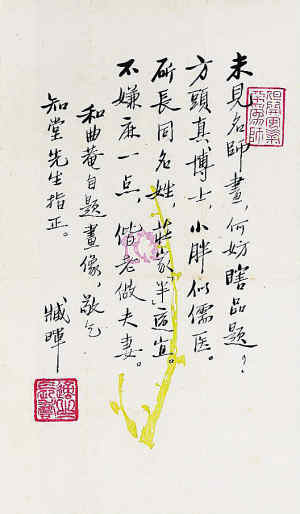 未見名師畫,何妨瞎品題?
方頭真博士,小胖似儒医。
長同名姓,莊家「半」適宜。
不嫌麻一点,偕老做夫妻。
和曲菴自題畫像,敬乞
知堂先生指正。
臧暉